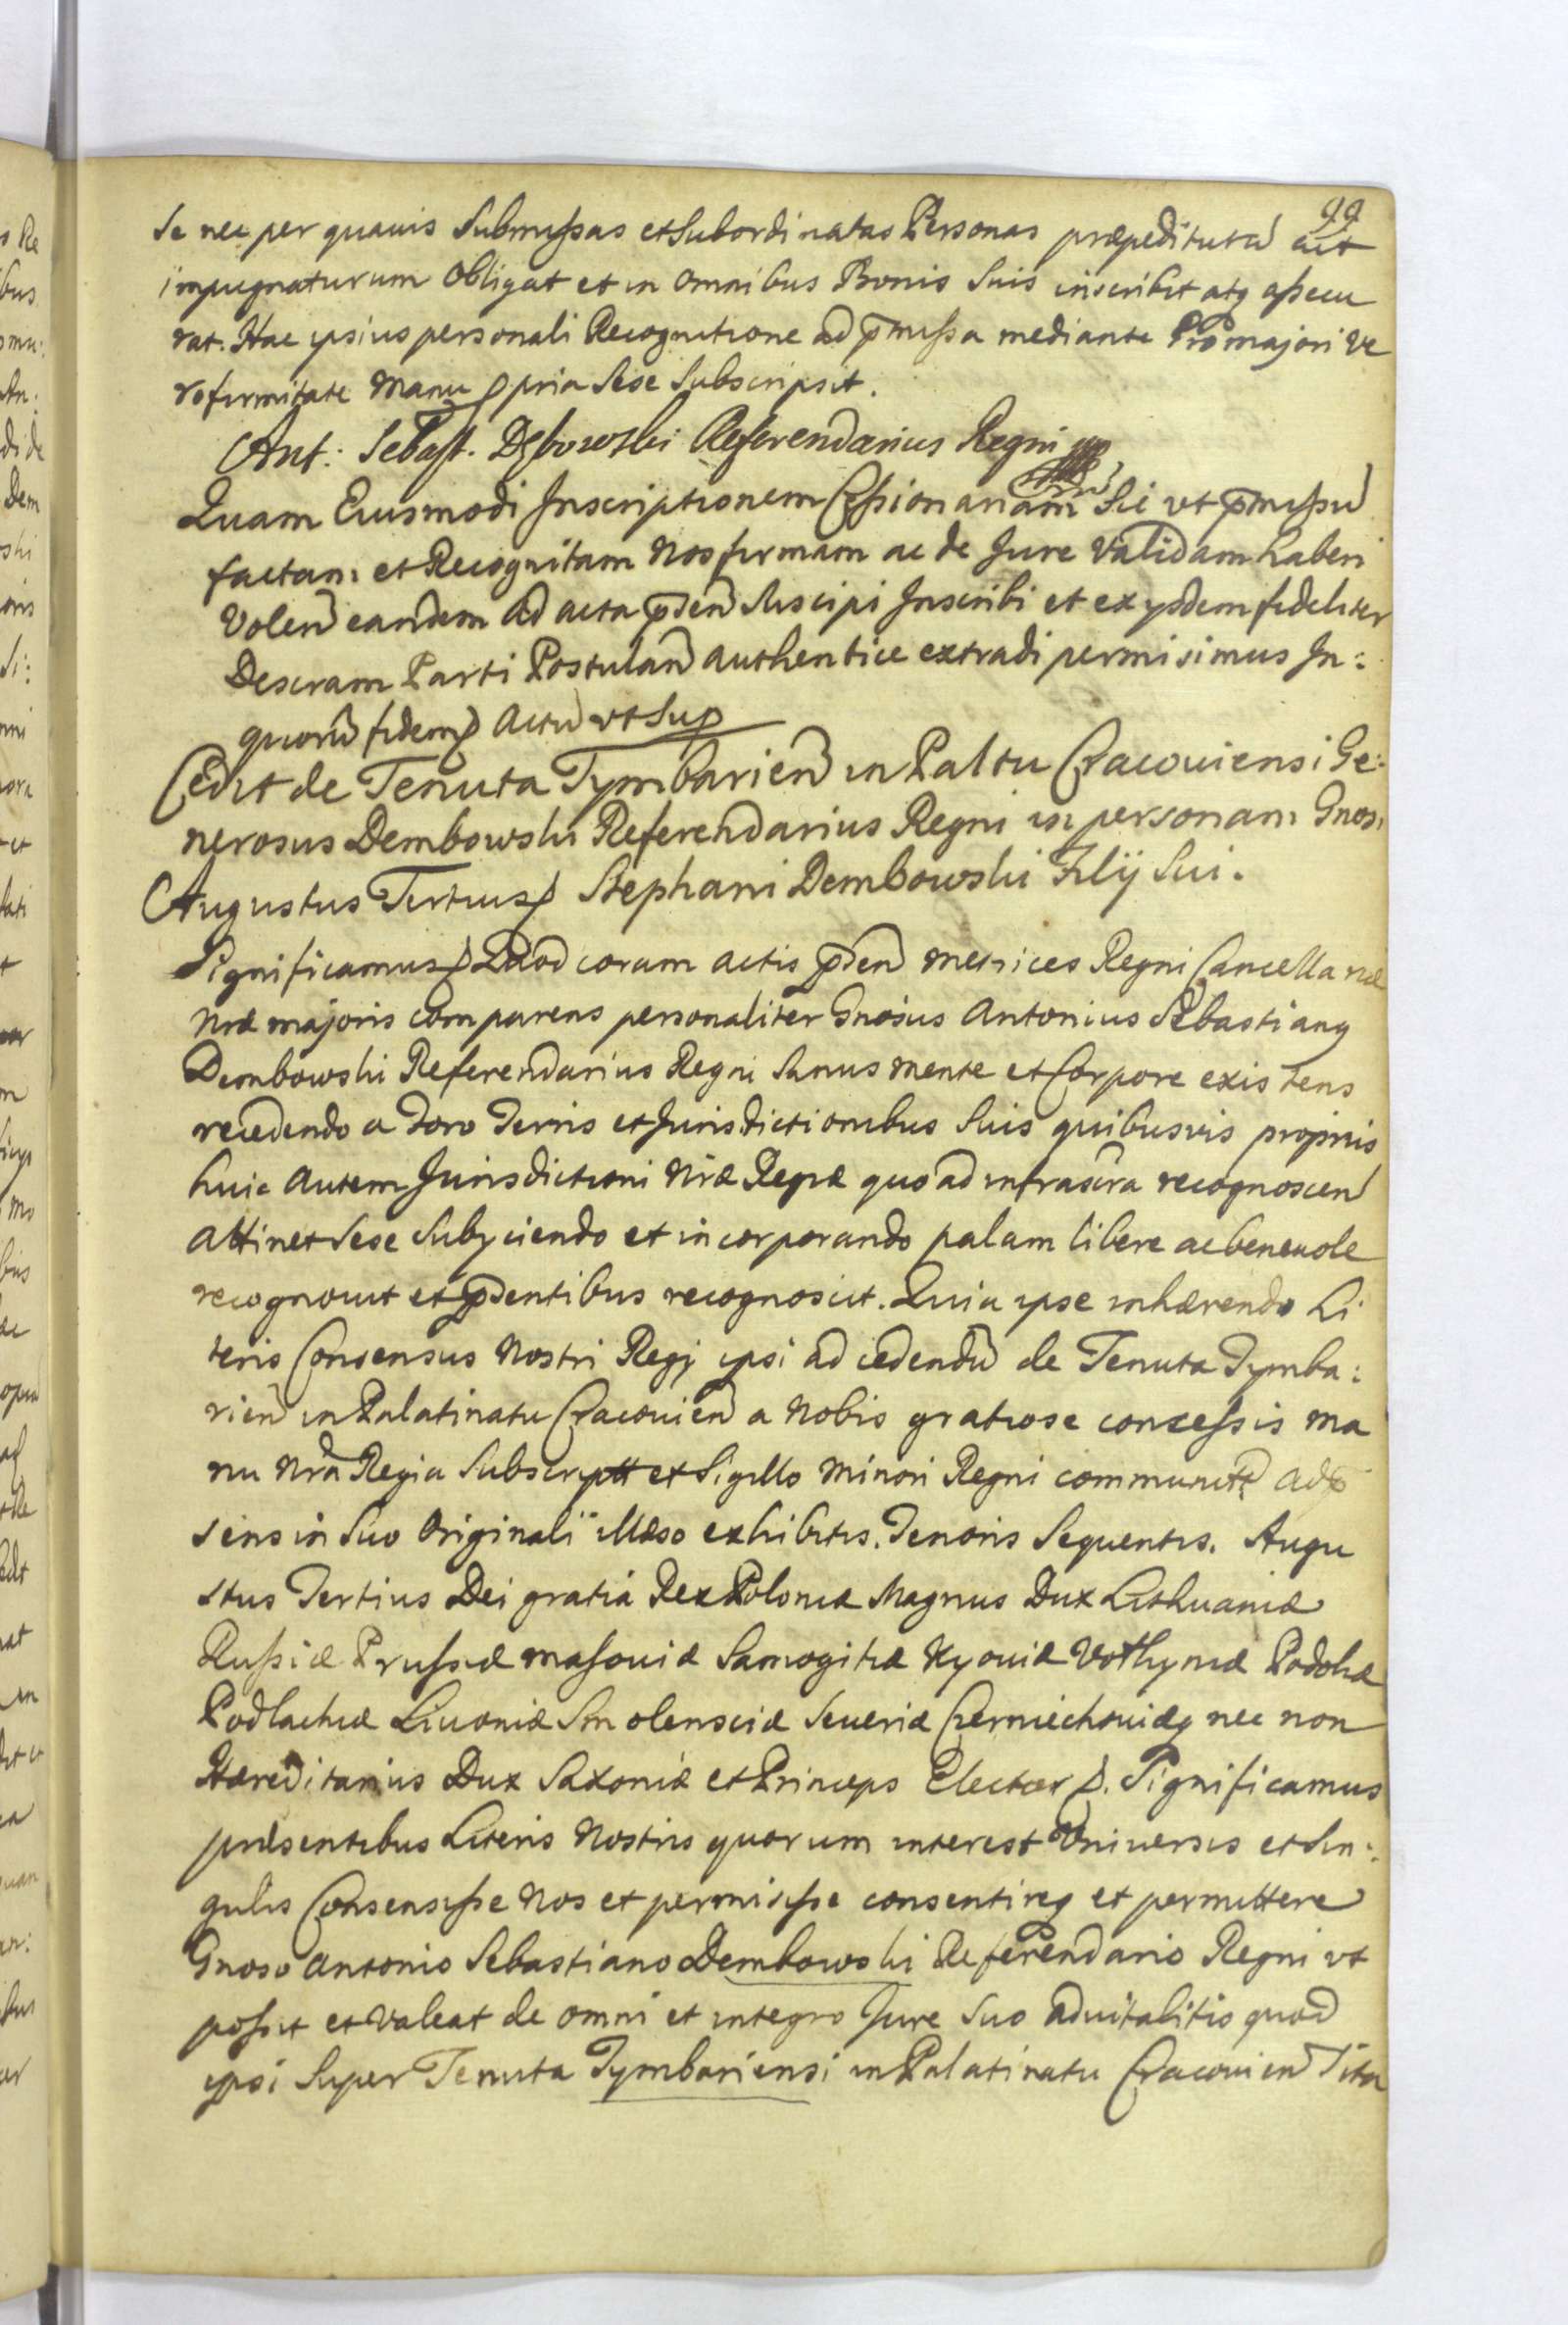 99
se nec per quauis Submissas et Subordinatas Personas præpeditura aut
impugnaturum Obligat et in Omnibus Bonis Suis inscribit atq assecu
rat. Hac ipsius personali Recognitione ad pmissa mediante Pro majori Ve
ro firmitate Manu ppria Sese Subscripsit.
Ant: Sebast. Dębowski Referendarius Regni
Quam Eiusmodi Inscriptionem Cessionariam Sic vt pmissu
factam et Recognitam Nos firmam ac de Jure Validam haberi
Volen eandem Ad acta pden Suscipi Inscribi et ex ysdem fideliter
Descram Parti Postulan authentice extradi permisimus In:
quoru fidem Actu vt Sup
Cedit de Tenuta Tymbarien in Paltu Cracouiensi Ge:
nerosus Dembowski Referendarius Regni in personam Gnosi
Augustus Tertius Stephani Dembowski Filij Sui.
Significamus Quod coram actis pden metrices Regni Cancellariæ
Nræ majoris comparens personaliter Gnosus Antonius Sebastianq
Dembowski Referendarius Regni Sanus mente et Corpore existens
recedendo a Foro Terris et Jurisdictionibus Suis quibusvis proprijs
huic autem Jurisdictioni Nræ Regiæ quo ad infrascra recognoscen
attinet Sese Subyciendo et incorporando palam libere ac beneuole
recognouit et pdentibus recognoscit. Quia ipse inhærendo Li
teris Consensus Nostri Regij ipsi ad cedendu de Tenuta Tymba:
rien in Palatinatu Cracouien a Nobis gratiose concessis ma
nu Nra Regia Subscriptt et Sigillo Minori Regni communit
sens in Suo Originali illæso exhibitis. Tenoris Sequentis. Augu
stus Tertius Dei gratia Rex Poloniæ Magnus Dux Lithuaniæ
Russiæ Prussiæ masouiæ Samogitiæ Kyouiæ Volhyniæ Podoliæ
Podlachiæ Liuoniæ Smolensciæ Seueriæ Czerniechouiæq nec non
Hæreditarius Dux Saxoniæ et Princeps Elector. Significamus
præsentibus Literis Nostris quorum interest Vniuersis et Sin:
gulis Consensisse Nos et permisisse consentireq et permittere
Gnoso Antonio Sebastiano Dembowski Referendario Regni vt
possit et valeat de omni et integro Jure Suo aduitalitio quod
ipsi Super Tenuta Tymbariensi in Palatinatu Cracouien Sita